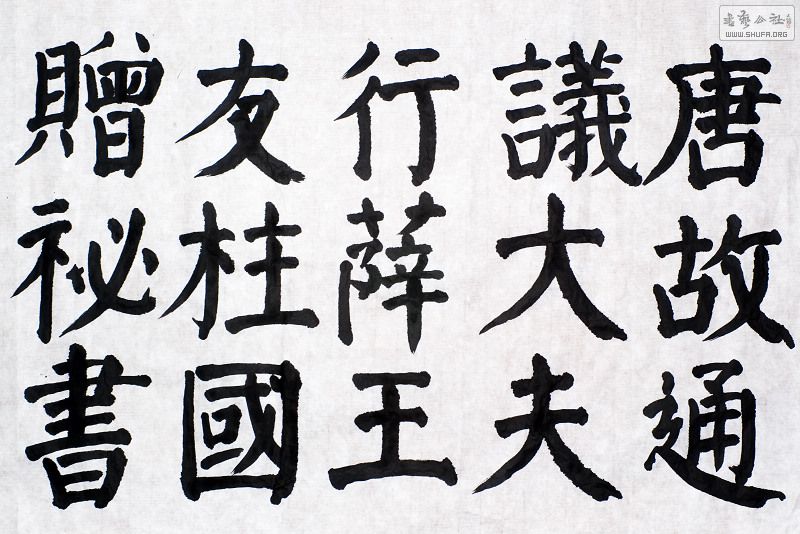 唐故通
議大夫
行薛王
友柱國
贈祕書
书艺公社
WWW.SHUFA.ORG